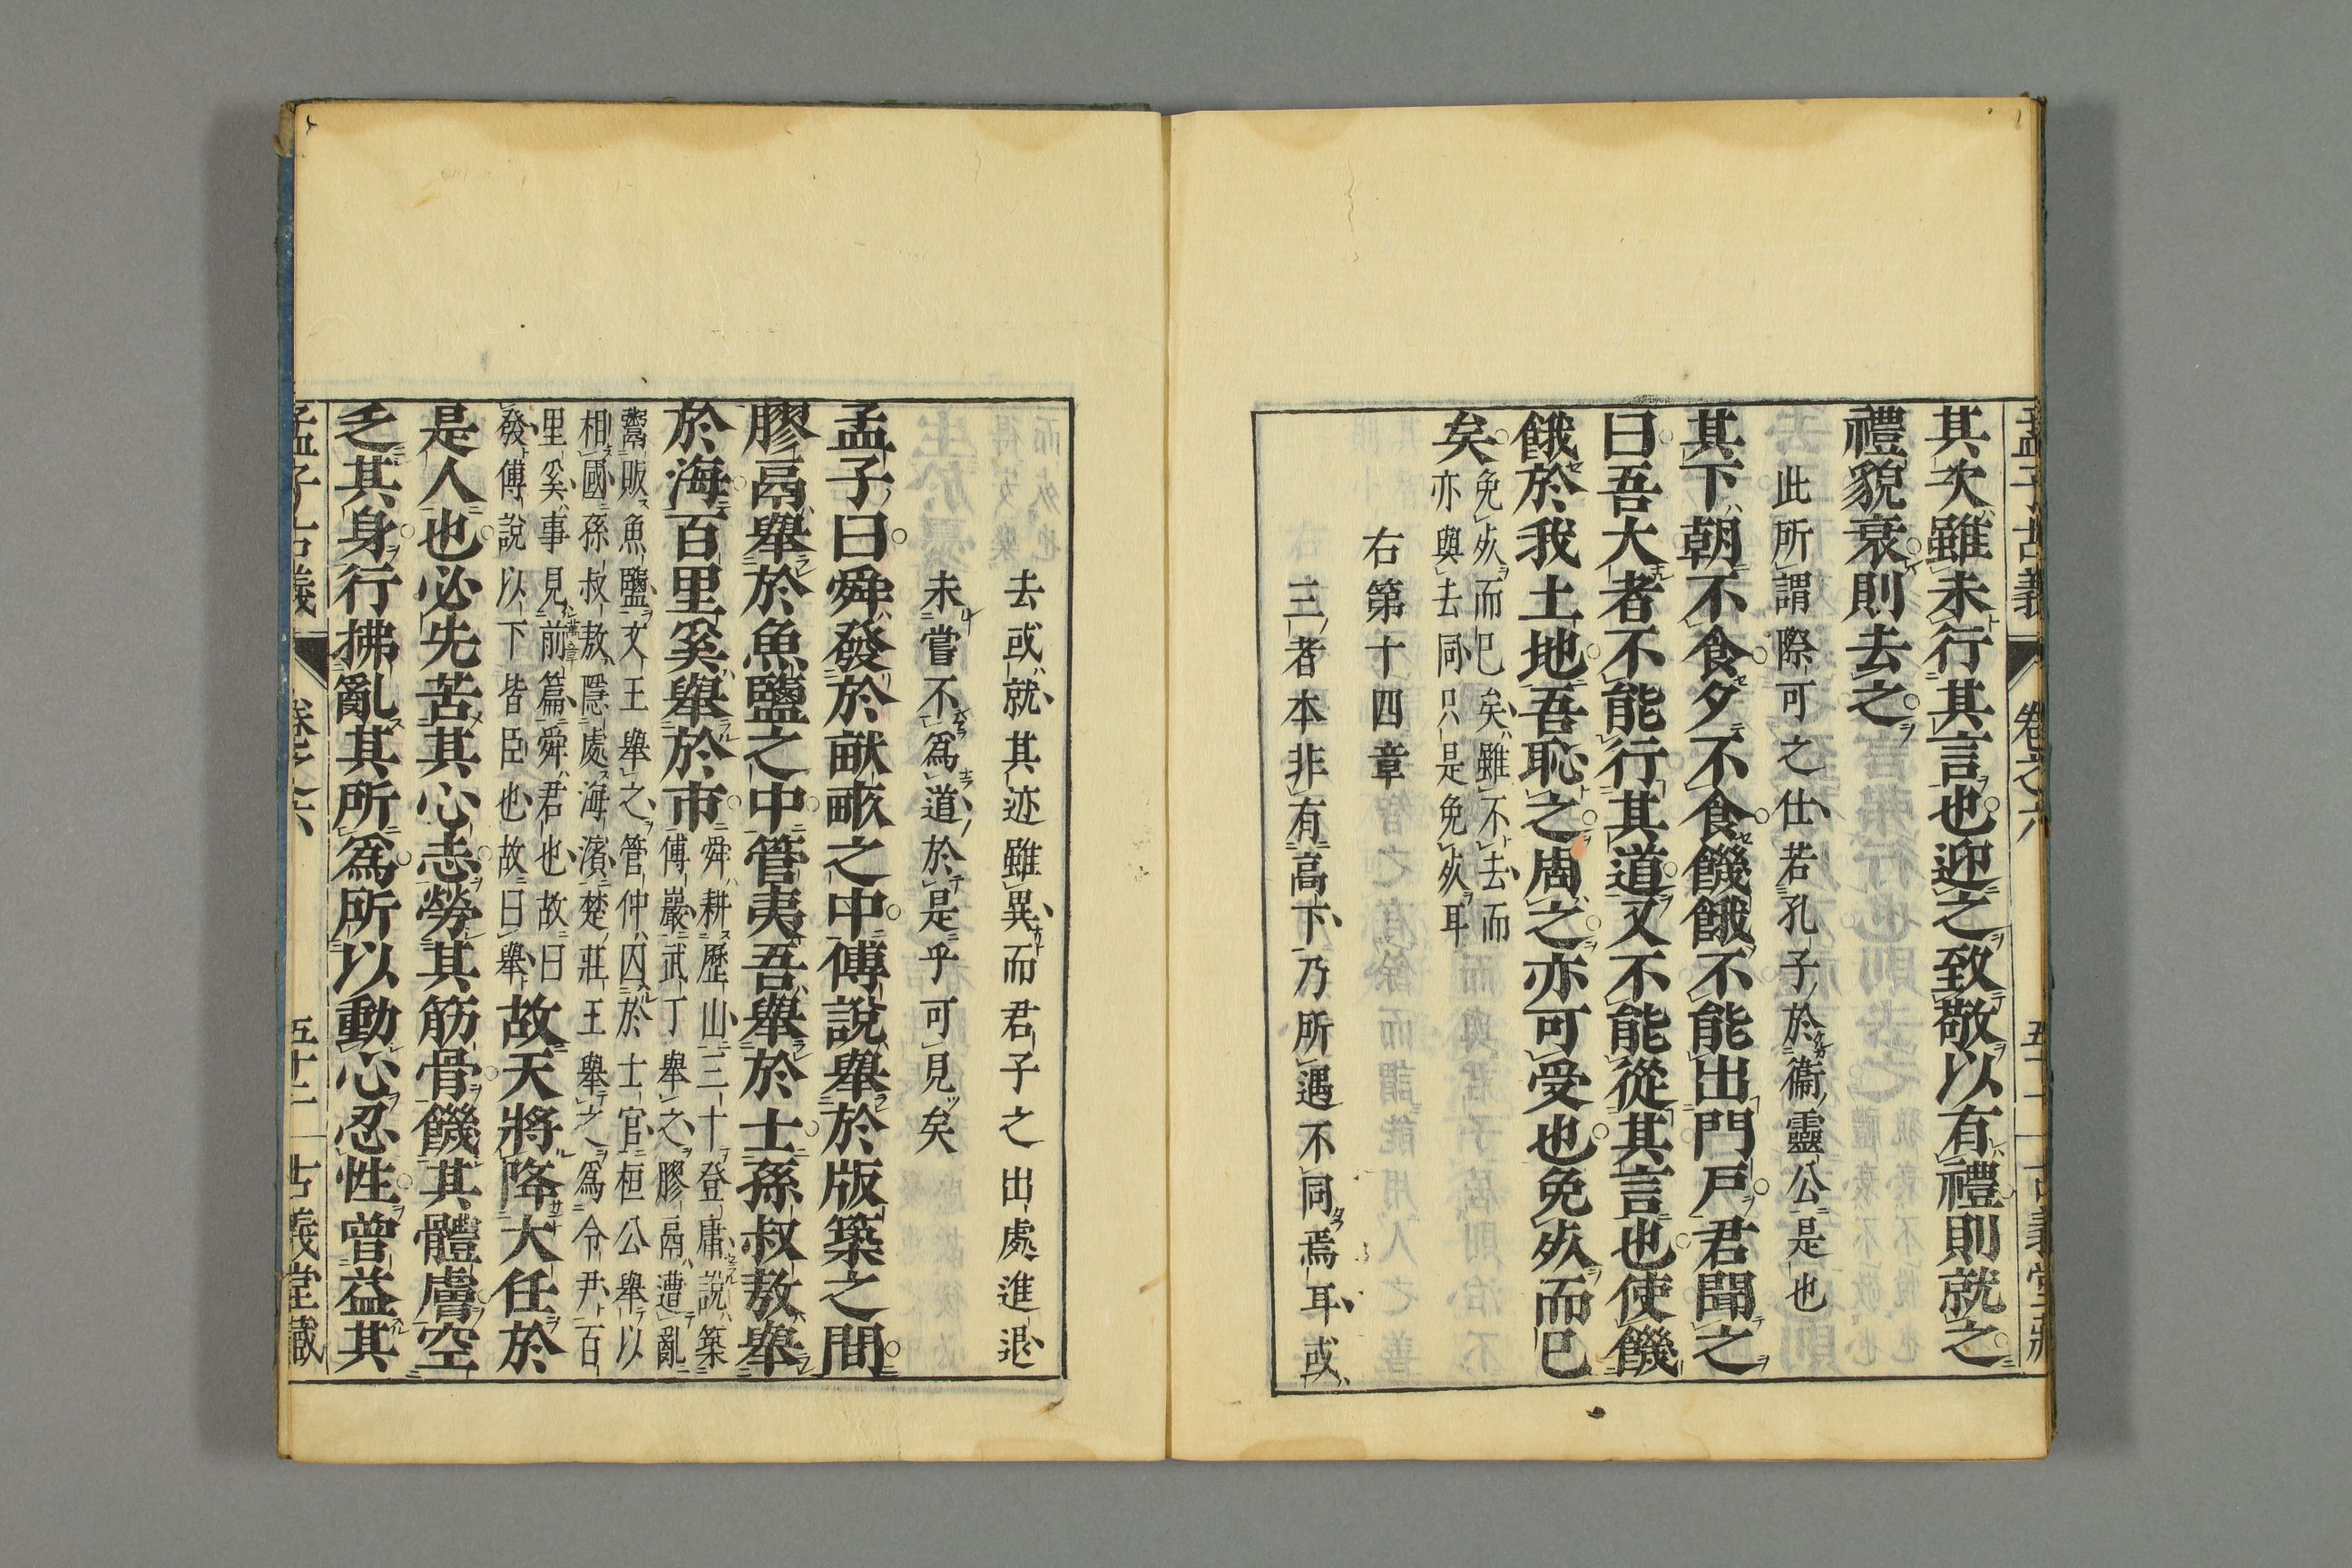 孟子古義 卷之六
其次雖未行其言也迎之致敬以有禮則就之
禮貌衰則去之
此所謂際可之仕若孔子於衞靈公是也
其下朝不食夕不食饑餓不能出門戸君聞之
曰吾大者不能行其道又不能從其言也使饑
餓於我土地吾恥之周之亦可受也免死而已
矣
免死而已矣雖不去而
亦與去同只是免死耳
右第十四章
三者本非有高下乃所遇不同焉耳或
去或就其迹雖異而君子之出處進退
未嘗不爲道於是乎可見矣
孟子曰舜發於畎畝之中傅說舉於版築之間
膠鬲舉於魚鹽之中管夷吾舉於士孫叔敖舉
於海百里奚舉於市
舜耕歷山三十登庸說築
傅巖武丁舉之膠鬲遭亂
鬻販魚鹽文王舉之管仲囚於士官桓公舉以
相國孫叔敖隱處海濱楚莊王舉之爲令尹百
里奚事見前篇舜君也故曰
發傅說以下皆臣也故曰舉
故天將降大任於
是人也必先苦其心志勞其筋骨饑其體膚空
乏其身行拂亂其所爲所以動心忍性曾益其
孟子古義 卷之六 五十二 古義堂藏